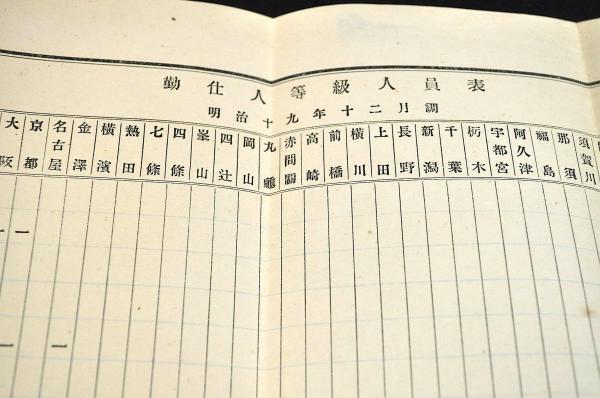 勤仕人等級人員表
明治十九年十二月調
須賀川
那須
福島
阿久津
宇都宮
栃木
千葉
新潟
長野
上田
横川
前橋
高崎
赤間關
丸龜
岡山
四辻
峯山
四條
七條
熱田
橫濱
金澤
名古屋
京都
大阪
一
一
一
一